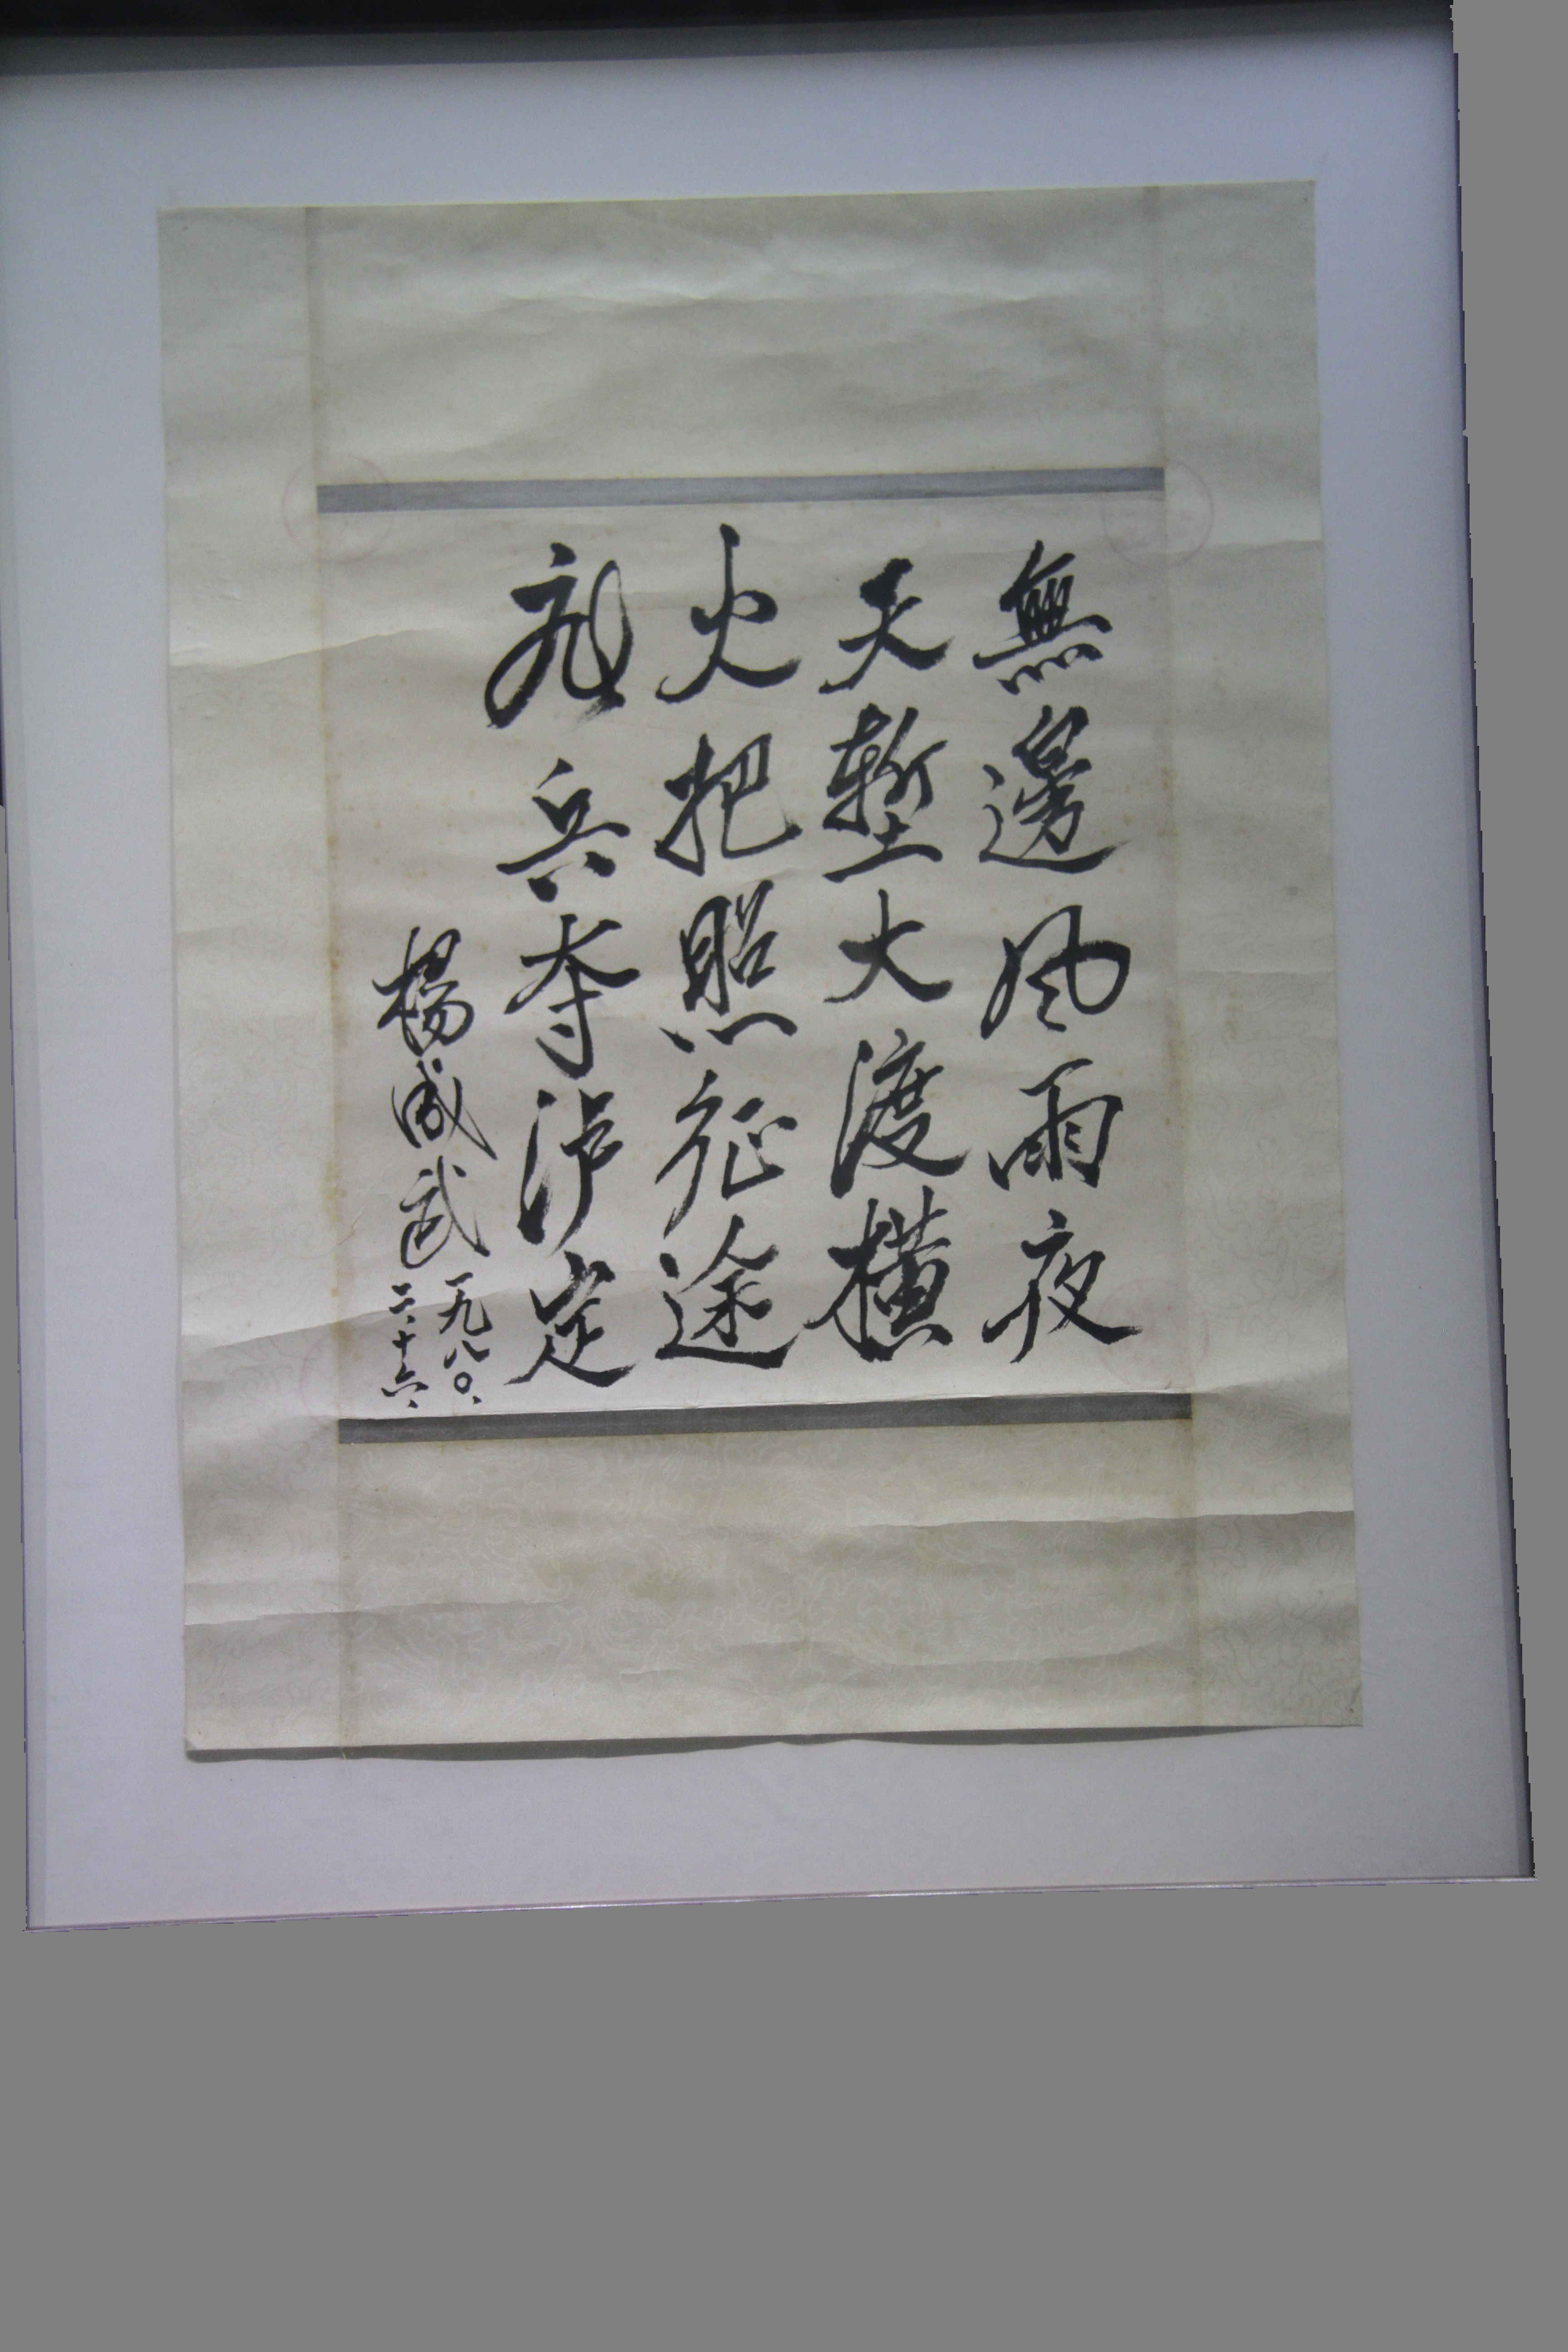 無邊风雨夜
天塹大渡橫
火把照征途
飛兵夺泸定
楊成武
一九八〇、
二、十六、